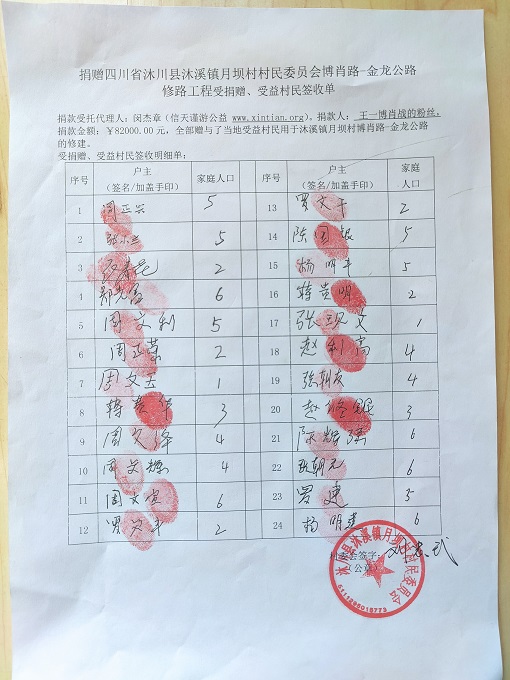 捐赠四川省沐川县沐溪镇月坝村村民委员会博肖路-金龙公路
修路工程受捐赠、受益村民签收单
捐款受托代理人：闵杰章（信天谨游公益 www.xintian.org），捐款人： 王一博肖战的粉丝；
捐款金额：￥82000.00 元，全部赠与了当地受益村民用于沐溪镇月坝村博肖路-金龙公路
的修建。
受捐赠、受益村民签收明细单：
序号 户主（签名/加盖手印） 家庭人口 序号 户主（签名/加盖手印） 家庭人口
1 周正兴 5 13 罗文干 2
2 5 14 陈国银 5
3 2 15 杨明平 5
4 6 16 韩贵明 2
5 周文利 5 17 1
6 周正荣 2 18 赵利高 4
7 周文云 1 19 张朝友 4
8 韩贵华 3 20 赵修银 3
9 周文泽 4 21 陈 6
10 周文 4 22 张朝元 6
11 周文宽 6 23 罗建 5
12 罗文平 2 24 杨明 6
村委会签字：
（公章）
沐川县沐溪镇月坝村村民委员会